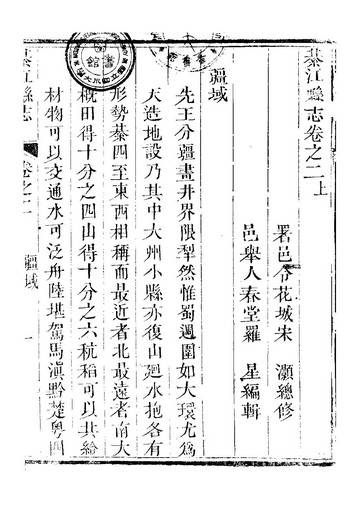 綦江縣志卷之二上
署邑令花城宋灝總修
邑舉人春堂羅星編輯
疆域
先王分疆畫井界限犁然惟蜀週圍如大環尤為
天造地設乃其中大州小縣亦復山廻水抱各有
形勢綦四至東西相稱而最近者北最遠者南大
概田得十分之四山得十分之六秔稻可以共給
材物可以交通水可泛舟陸堪駕馬滇黔楚粵四
綦江縣志
卷之二
疆域
一